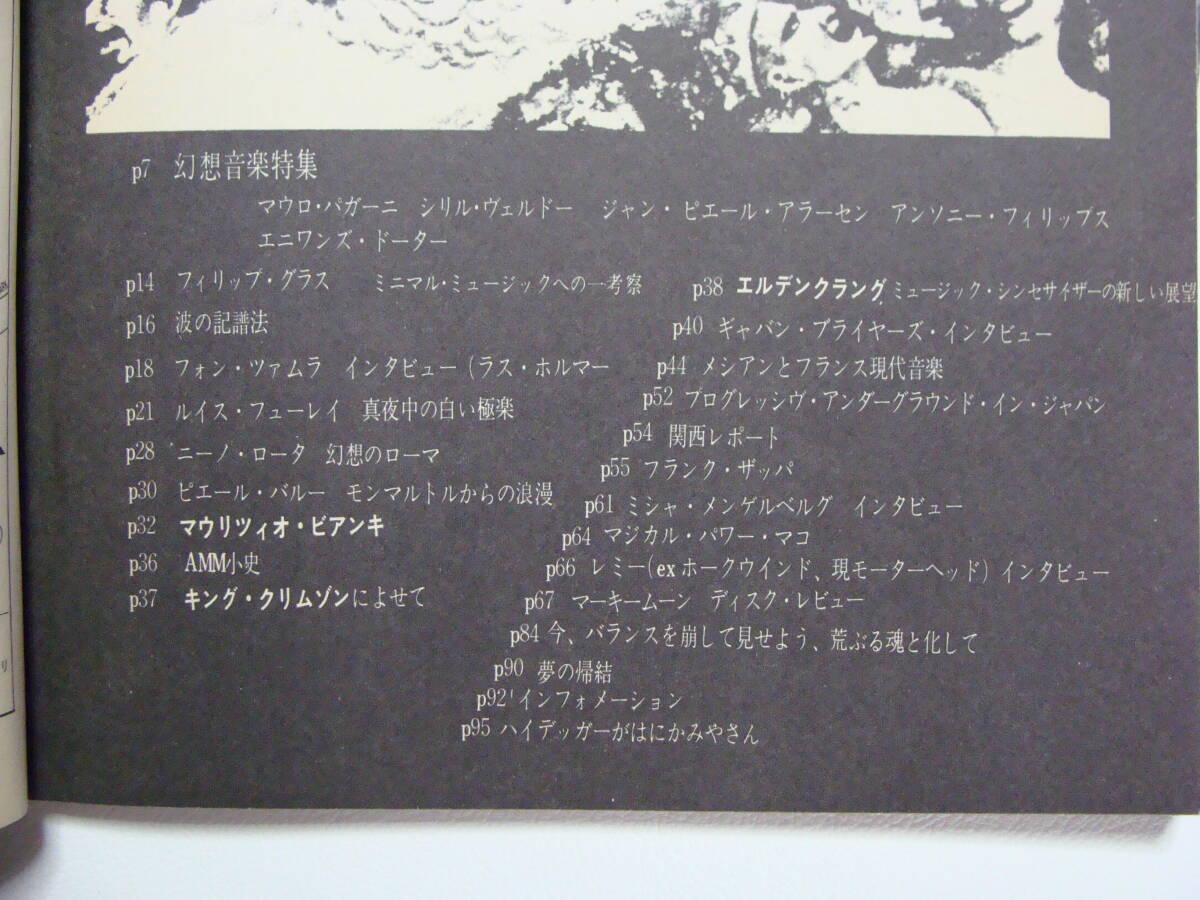 p7 幻想音楽特集
マウロ・パガーニ シリル・ヴェルドー ジャン・ピエール・アラーセン アンソニー・フィリップス
エニワンズ・ドーター
p14 フィリップ・グラス ミニマル・ミュージックへの一考察
p16 波の記譜法
p18 フォン・ツァムラ インタビュー(ラス・ホルマー
p21 ルイス・フューレイ 真夜中の白い極楽
p28 ニーノ・ロータ 幻想のローマ
p30 ピエール・バルー モンマルトルからの浪漫
p32 マウリツィオ・ビアンキ
p36 AMM小史
p37 キング・クリムゾンによせて
p38 エルデンクラング ミュージック・シンセサイザーの新しい展望
p40 ギャバン・ブライヤーズ・インタビュー
p44 メシアンとフランス現代音楽
p52 プログレッシヴ・アンダーグラウンド・イン・ジャパン
p54 関西レポート
p55 フランク・ザッパ
p61 ミシャ・メンゲルベルグ インタビュー
p64 マジカル・パワー・マコ
p66 レミー(exホークウインド、現モーターヘッド) インタビュー
p67 マーキームーン ディスク・レビュー
p84 今、バランスを崩して見せよう、荒ぶる魂と化して
p90 夢の帰結
p92 インフォメーション
p95 ハイデッガーがはにかみやさん